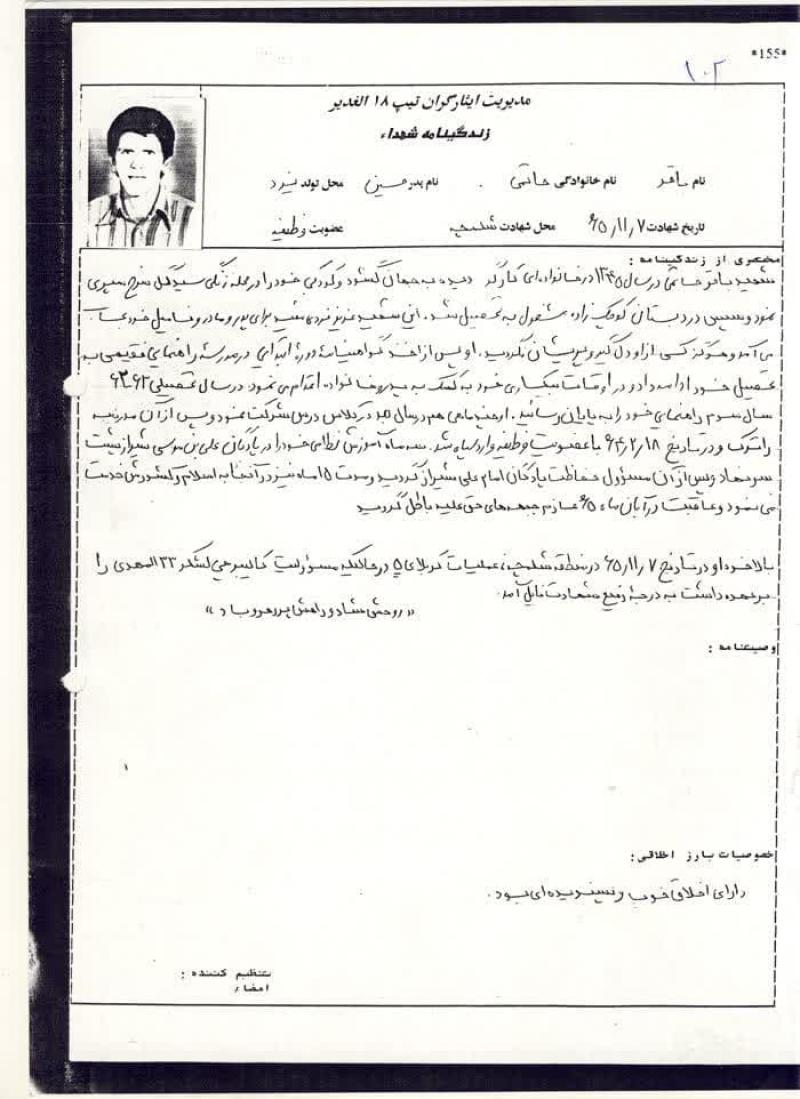 *155*
۱۰۲
مدیریت ایثارگران تیپ ۱۸ الغدیر
زندگینامه شهداء
نام باقر نام خانوادگی حاتمی نام پدر حسین محل تولد یزد
تاریخ شهادت ۶۵/۱۱/۷ محل شهادت شلمچه عضویت وظیفه
مختصری از زندگینامه :
شهید باقر حاتمی در سال ۱۳۴۵ در خانواده‌ای کارگر دیده به جهان گشود و کودکی خود را در محله زندگی سید گل سرخ سپری
نمود و سپس در دبستان کوچک زاده مشغول به تحصیل شد . این شهید عزیز فردی مفید برای پدر و مادر و فامیل خود بحساب
می آمد و هرگز کسی از او دلگیر و پریشان نگردید. او پس از اخذ گواهینامه دوره ابتدایی در مدرسه راهنمایی مقیمی به
تحصیل خود ادامه داد و در اوقات بیکاری خود به کمک به پدر و خانواده اقدام می نمود. در سال تحصیلی ۶۲-۶۳
سال سوم راهنمایی خود را به پایان رسانید . او چند ماهی هم در سال بعد در کلاس درس شرکت نمود و پس از آن مدرسه
را ترک و در تاریخ ۶۴/۲/۱۸ با عضویت وظیفه وارد سپاه شد. سه ماه آموزش نظامی خود را در پادگان علی بن موسی شیراز پشت
سر نهاد و پس از آن مسؤول حفاظت پادگان امام علی شیراز گردید و مدت ۱۵ ماه نیز در آنجا به اسلام و کشورش خدمت
می نمود و عاقبت در آبان ماه ۶۵ عازم جبهه‌های حق علیه باطل گردید
بالاخره او در تاریخ ۶۵/۱۱/۷ در منطقه شلمچه ، عملیات کربلای ۵ در حالیکه مسؤولیت کالیبرچی لشکر ۳۳ المهدی را
بر عهده داشت به درجه رفیع شهادت نایل آمد.
« روحش شاد و راهش پر رهرو باد »
وصیتنامه :
خصوصیات بارز اخلاقی :
دارای اخلاق خوب و پسندیده ای بود .
تنظیم کننده :
امضاء